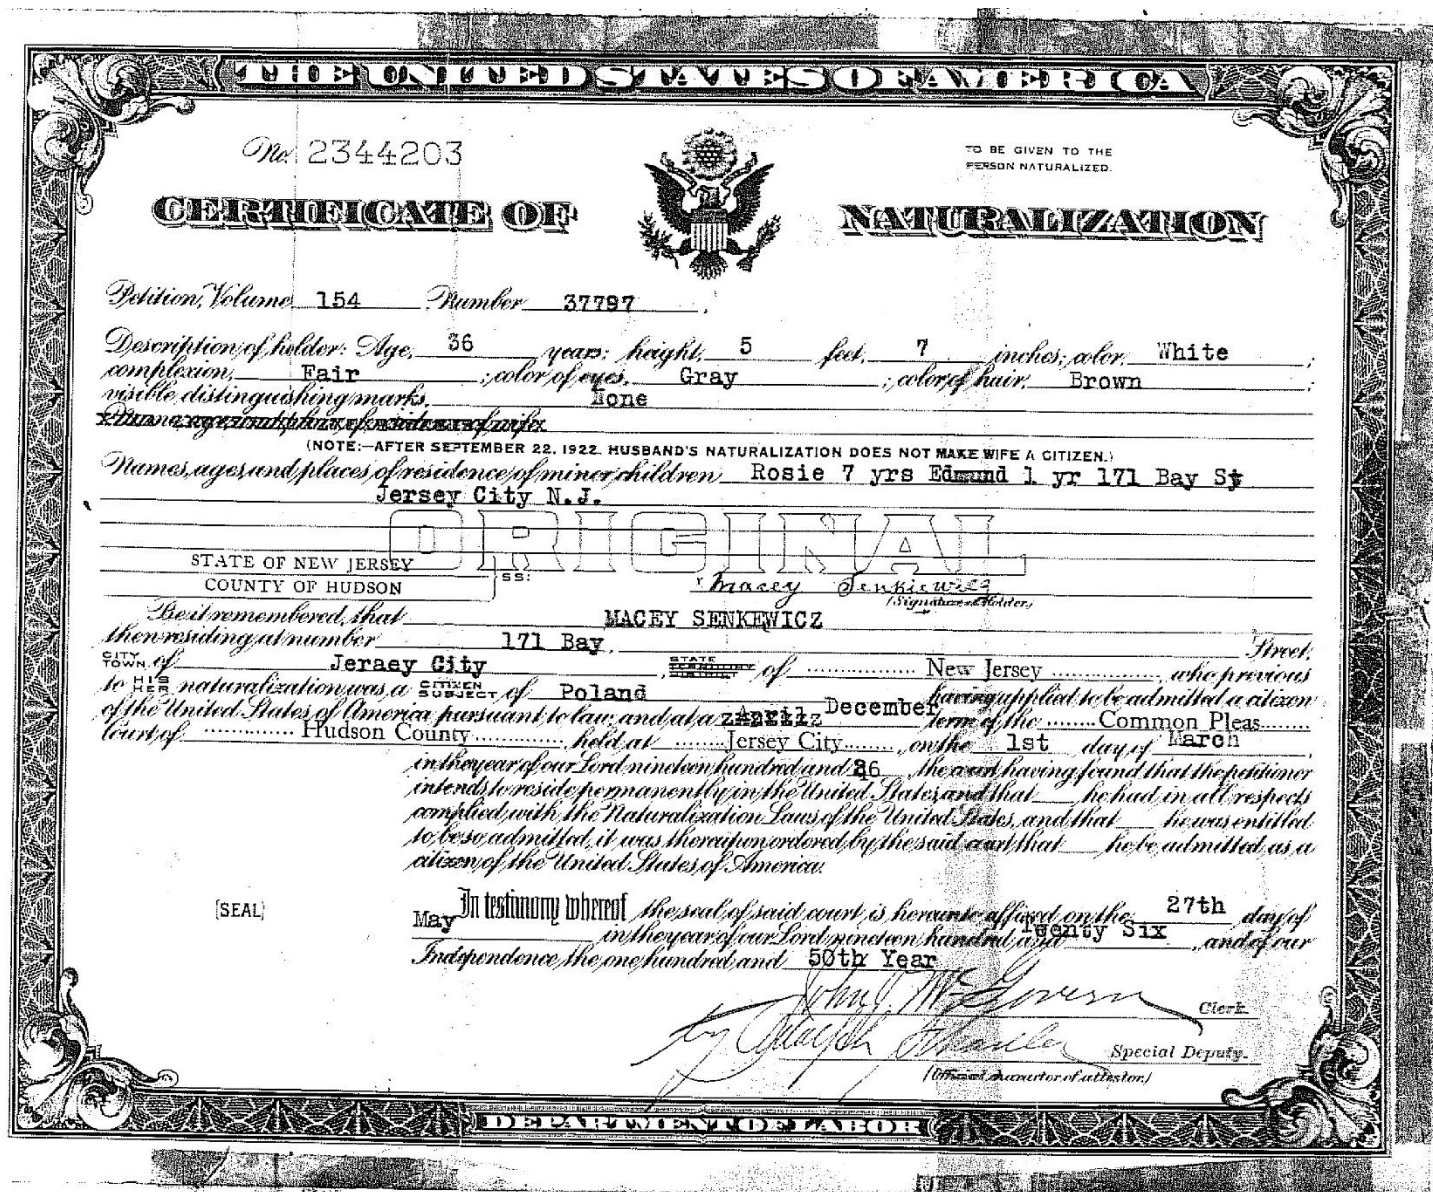 THE UNITED STATES OF AMERICA
No. 2344203
TO BE GIVEN TO THE
PERSON NATURALIZED.
CERTIFICATE OF NATURALIZATION
Petition, Volume 154 Number 37797,
Description of holder: Age, 36 years; height, 5 feet, 7 inches; color, White;
complexion, Fair; color of eyes, Gray; color of hair, Brown;
visible distinguishing marks, None
Name, age and place of residence of wife
(NOTE:—AFTER SEPTEMBER 22, 1922. HUSBAND'S NATURALIZATION DOES NOT MAKE WIFE A CITIZEN.)
Names, ages, and places of residence of minor children Rosie 7 yrs Edmund 1 yr 171 Bay St
Jersey City N.J.
ORIGINAL
STATE OF NEW JERSEY
COUNTY OF HUDSON
SS:
Macey Senkiewicz
(Signature of Holder)
Be it remembered, that MACEY SENKEWICZ
then residing at number 171 Bay, Street,
CITY TOWN of Jeraey City, STATE TERRITORY DISTRICT of New Jersey, who previous
to HIS HER naturalization was a CITIZEN SUBJECT of Poland having applied to be admitted a citizen
of the United States of America pursuant to law; and at a April December term of the Common Pleas
Court of Hudson County held at Jersey City, on the 1st day of March
in the year of our Lord nineteen hundred and 26, the court having found that the petitioner
intends to reside permanently in the United States, and that he had in all respects
complied with the Naturalization Laws of the United States, and that he was entitled
to be so admitted, it was thereupon ordered by the said court that he be admitted as a
citizen of the United States of America.
[SEAL]
In testimony whereof the seal of said court is hereunto affixed on the 27th day of
May in the year of our Lord nineteen hundred and Twenty Six, and of our
Independence the one hundred and 50th Year
John J. McGovern Clerk.
by Special Deputy.
(Official character of attestor.)
DEPARTMENT OF LABOR